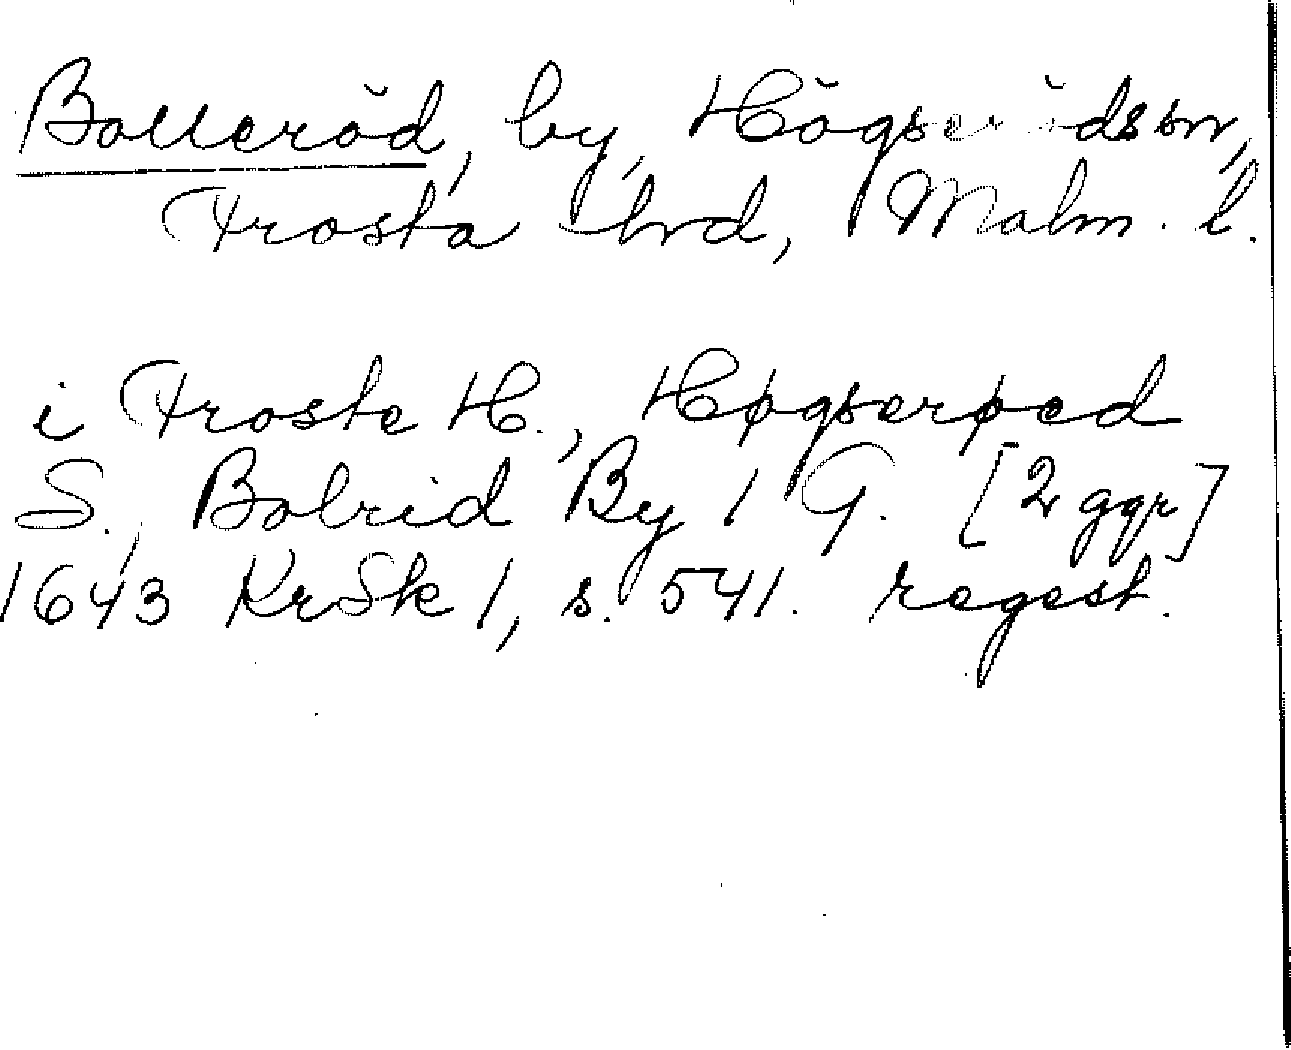 Bolleröd, by, Högserödssn,
Frosta hrd, Malm. l.
i Froste H., Høgserøed
S., Bolrid By 1 G. [2 ggr]
1643 KrSk 1, s. 541. regest.